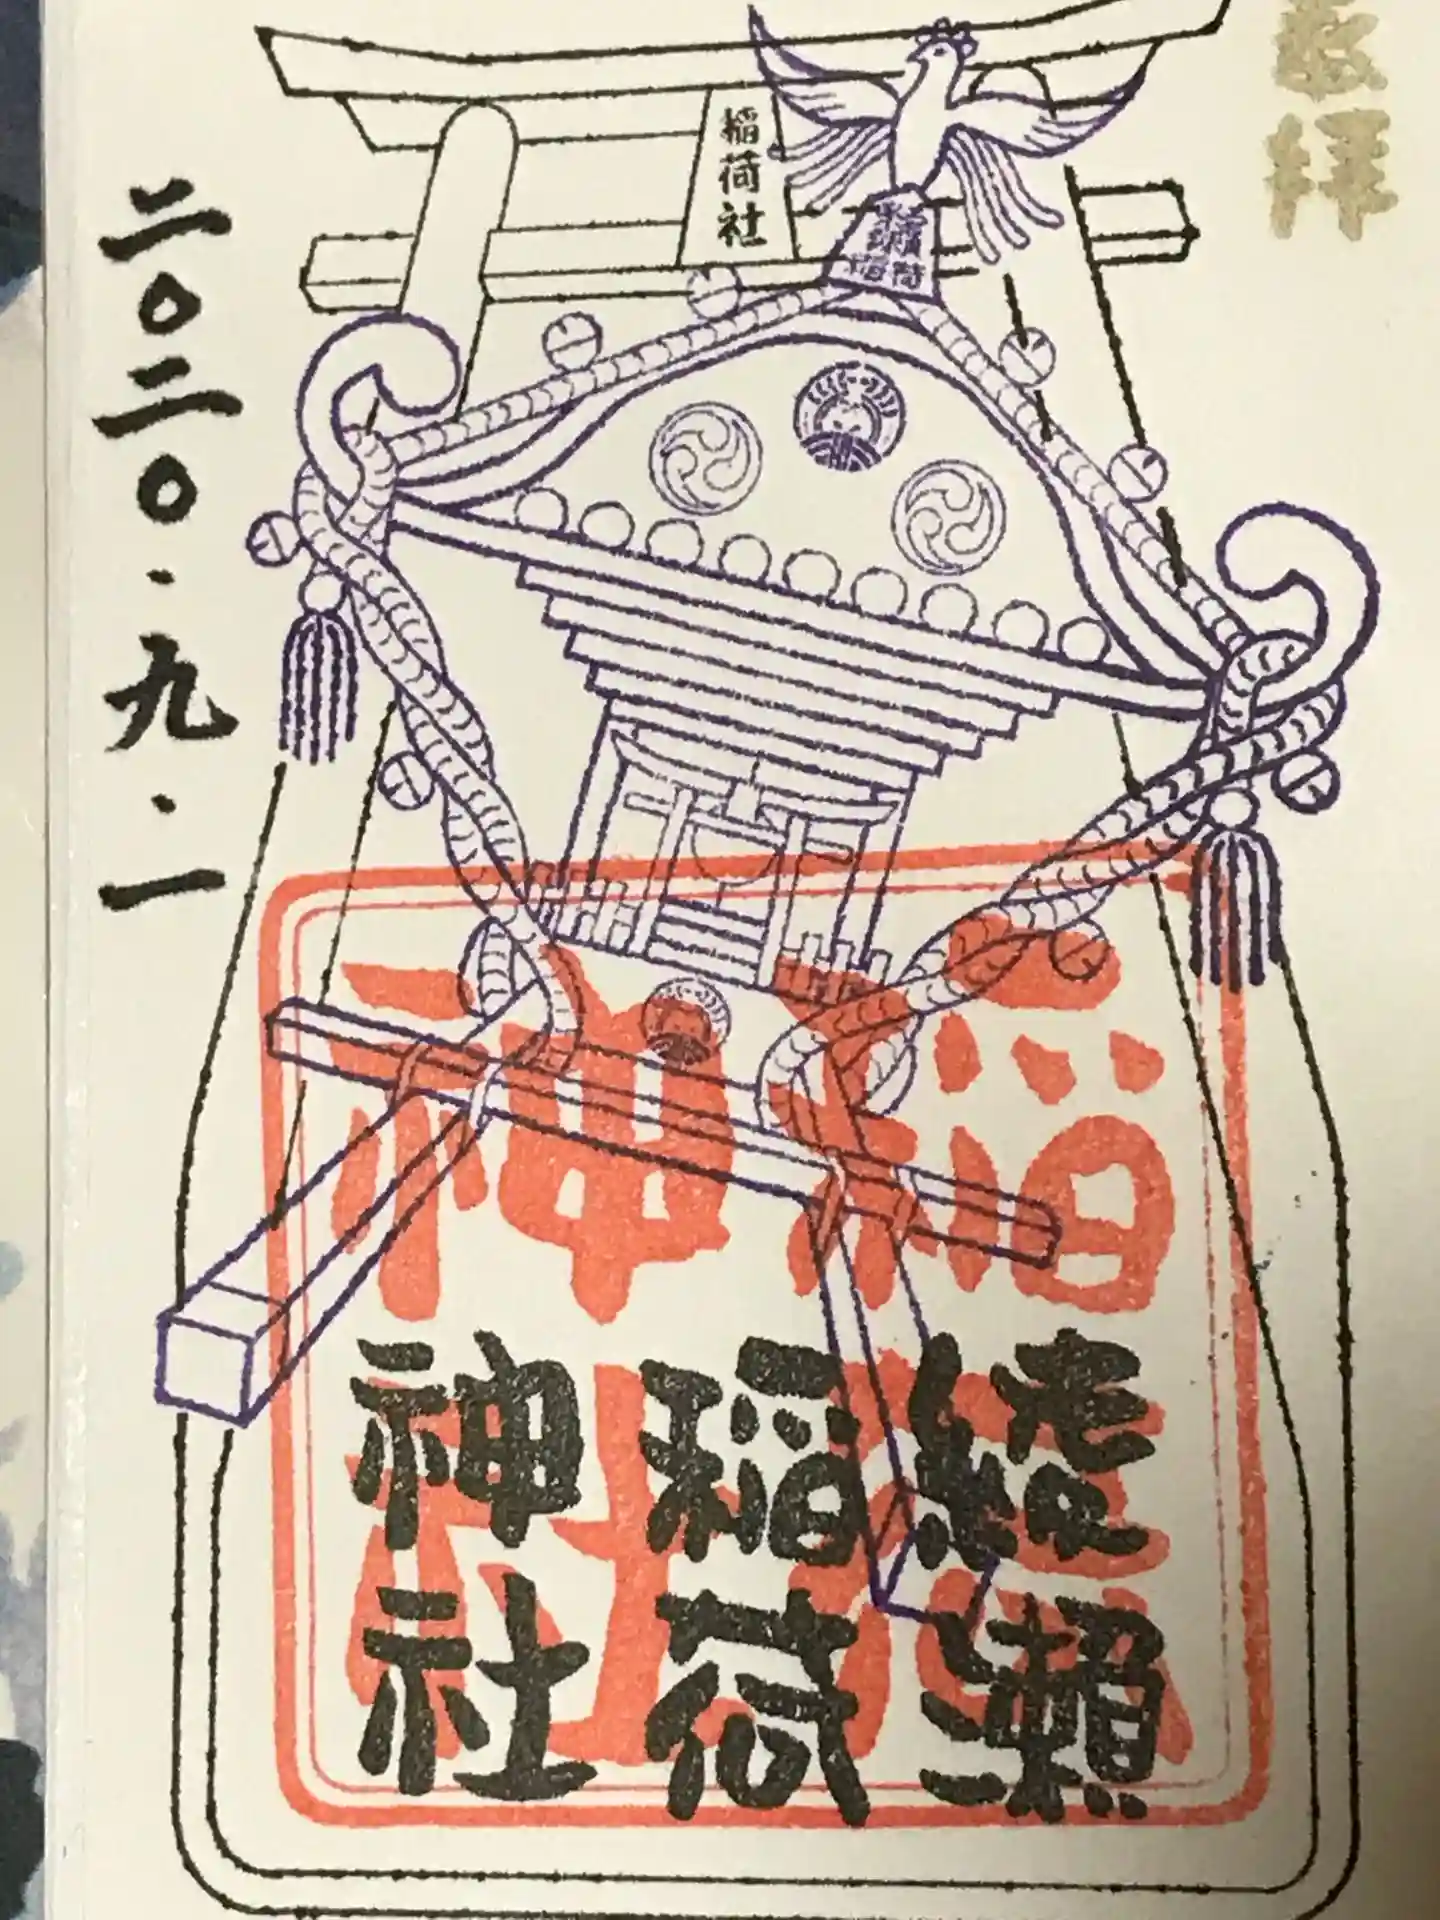 敬拝
稲荷社
綾瀬
稲荷
二〇二〇・九・一
稲荷
神社
綾瀬
稲荷
神社